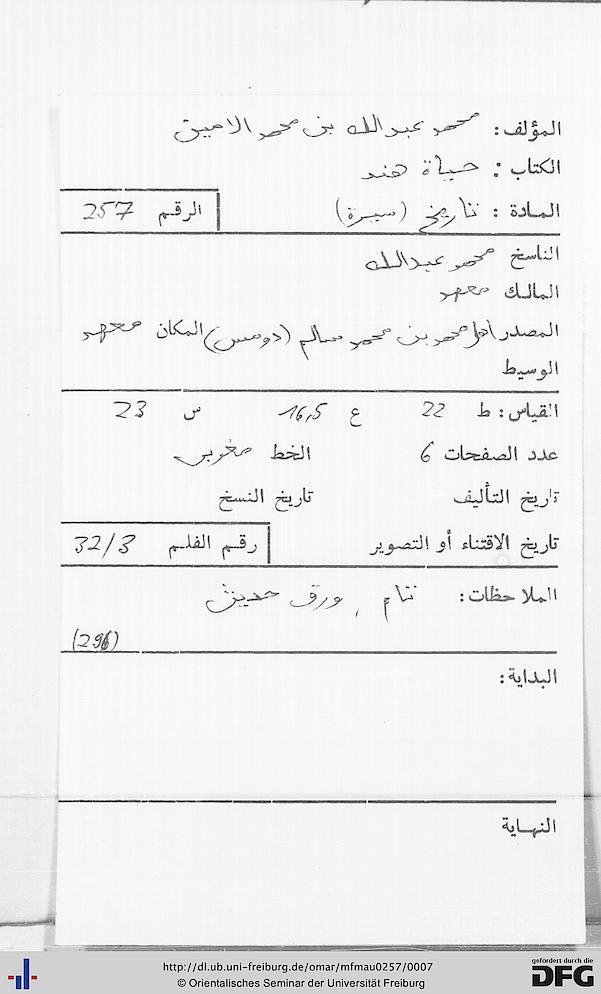 المؤلف: محمد عبد الله بن محمد الامين
الكتاب: حياة هند
المادة: تاريخ (سيرة) الرقم 257
الناسخ محمد عبد الله
المالك معهد
المصدر اهل محمد بن محمد سالم (دومس) المكان معهد
الوسيط
القياس: ط 22 ع 16,5 س 23
عدد الصفحات 6 الخط مغربي
تاريخ التأليف تاريخ النسخ
تاريخ الاقتناء أو التصوير رقم الفلم 32/3
الملاحظات: تام، ورق حديث
(296)
البداية:
النهاية
http://dl.ub.uni-freiburg.de/omar/mfmau0257/0007
© Orientalisches Seminar der Universität Freiburg
gefördert durch die
DFG